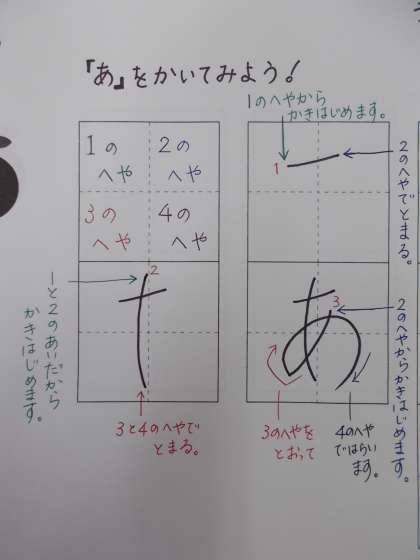 「あ」をかいてみよう！
1の
へや
2の
へや
3の
へや
4の
へや
1のへやから
かきはじめます。
1
2のへやでとまる。
1と2のあいだから
かきはじめます。
2
3と4のへやで
とまる。
3
あ
2のへやからかきはじめます。
3のへやを
とおって
4のへや
ではらい
ます。